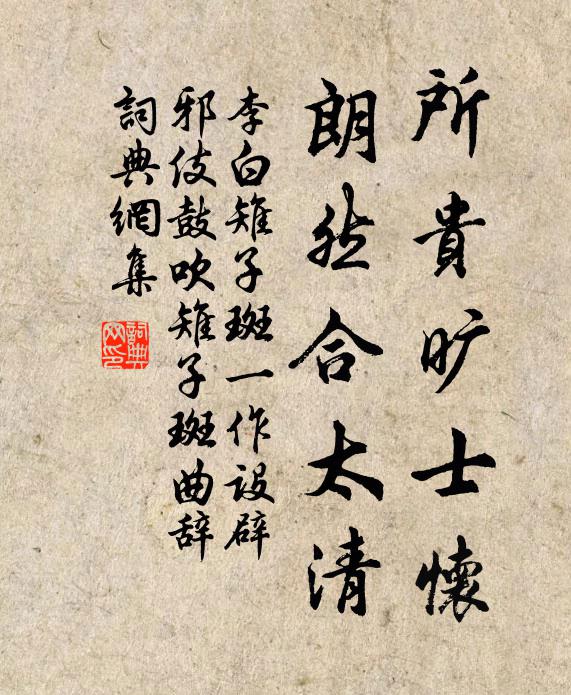 所貴旷士懷
朗然合太清
李白雉子斑一作设辟
邪伎鼓吹雉子斑曲辞
詞典網集
詞典
网印